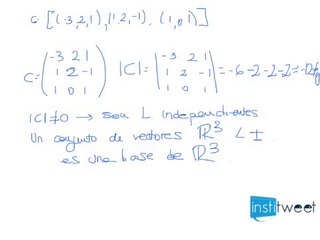 C [(-3,2,1),(1,2,-1),(1,0,1)]
C = ( -3 2 1 / 1 2 -1 / 1 0 1 ) |C| = | -3 2 1 / 1 2 -1 / 1 0 1 | = -6-2-2-2 = -12
|C| ≠ 0 → son L independientes
Un conjunto de vectores ℝ³ L I
es una base de ℝ³
institweet